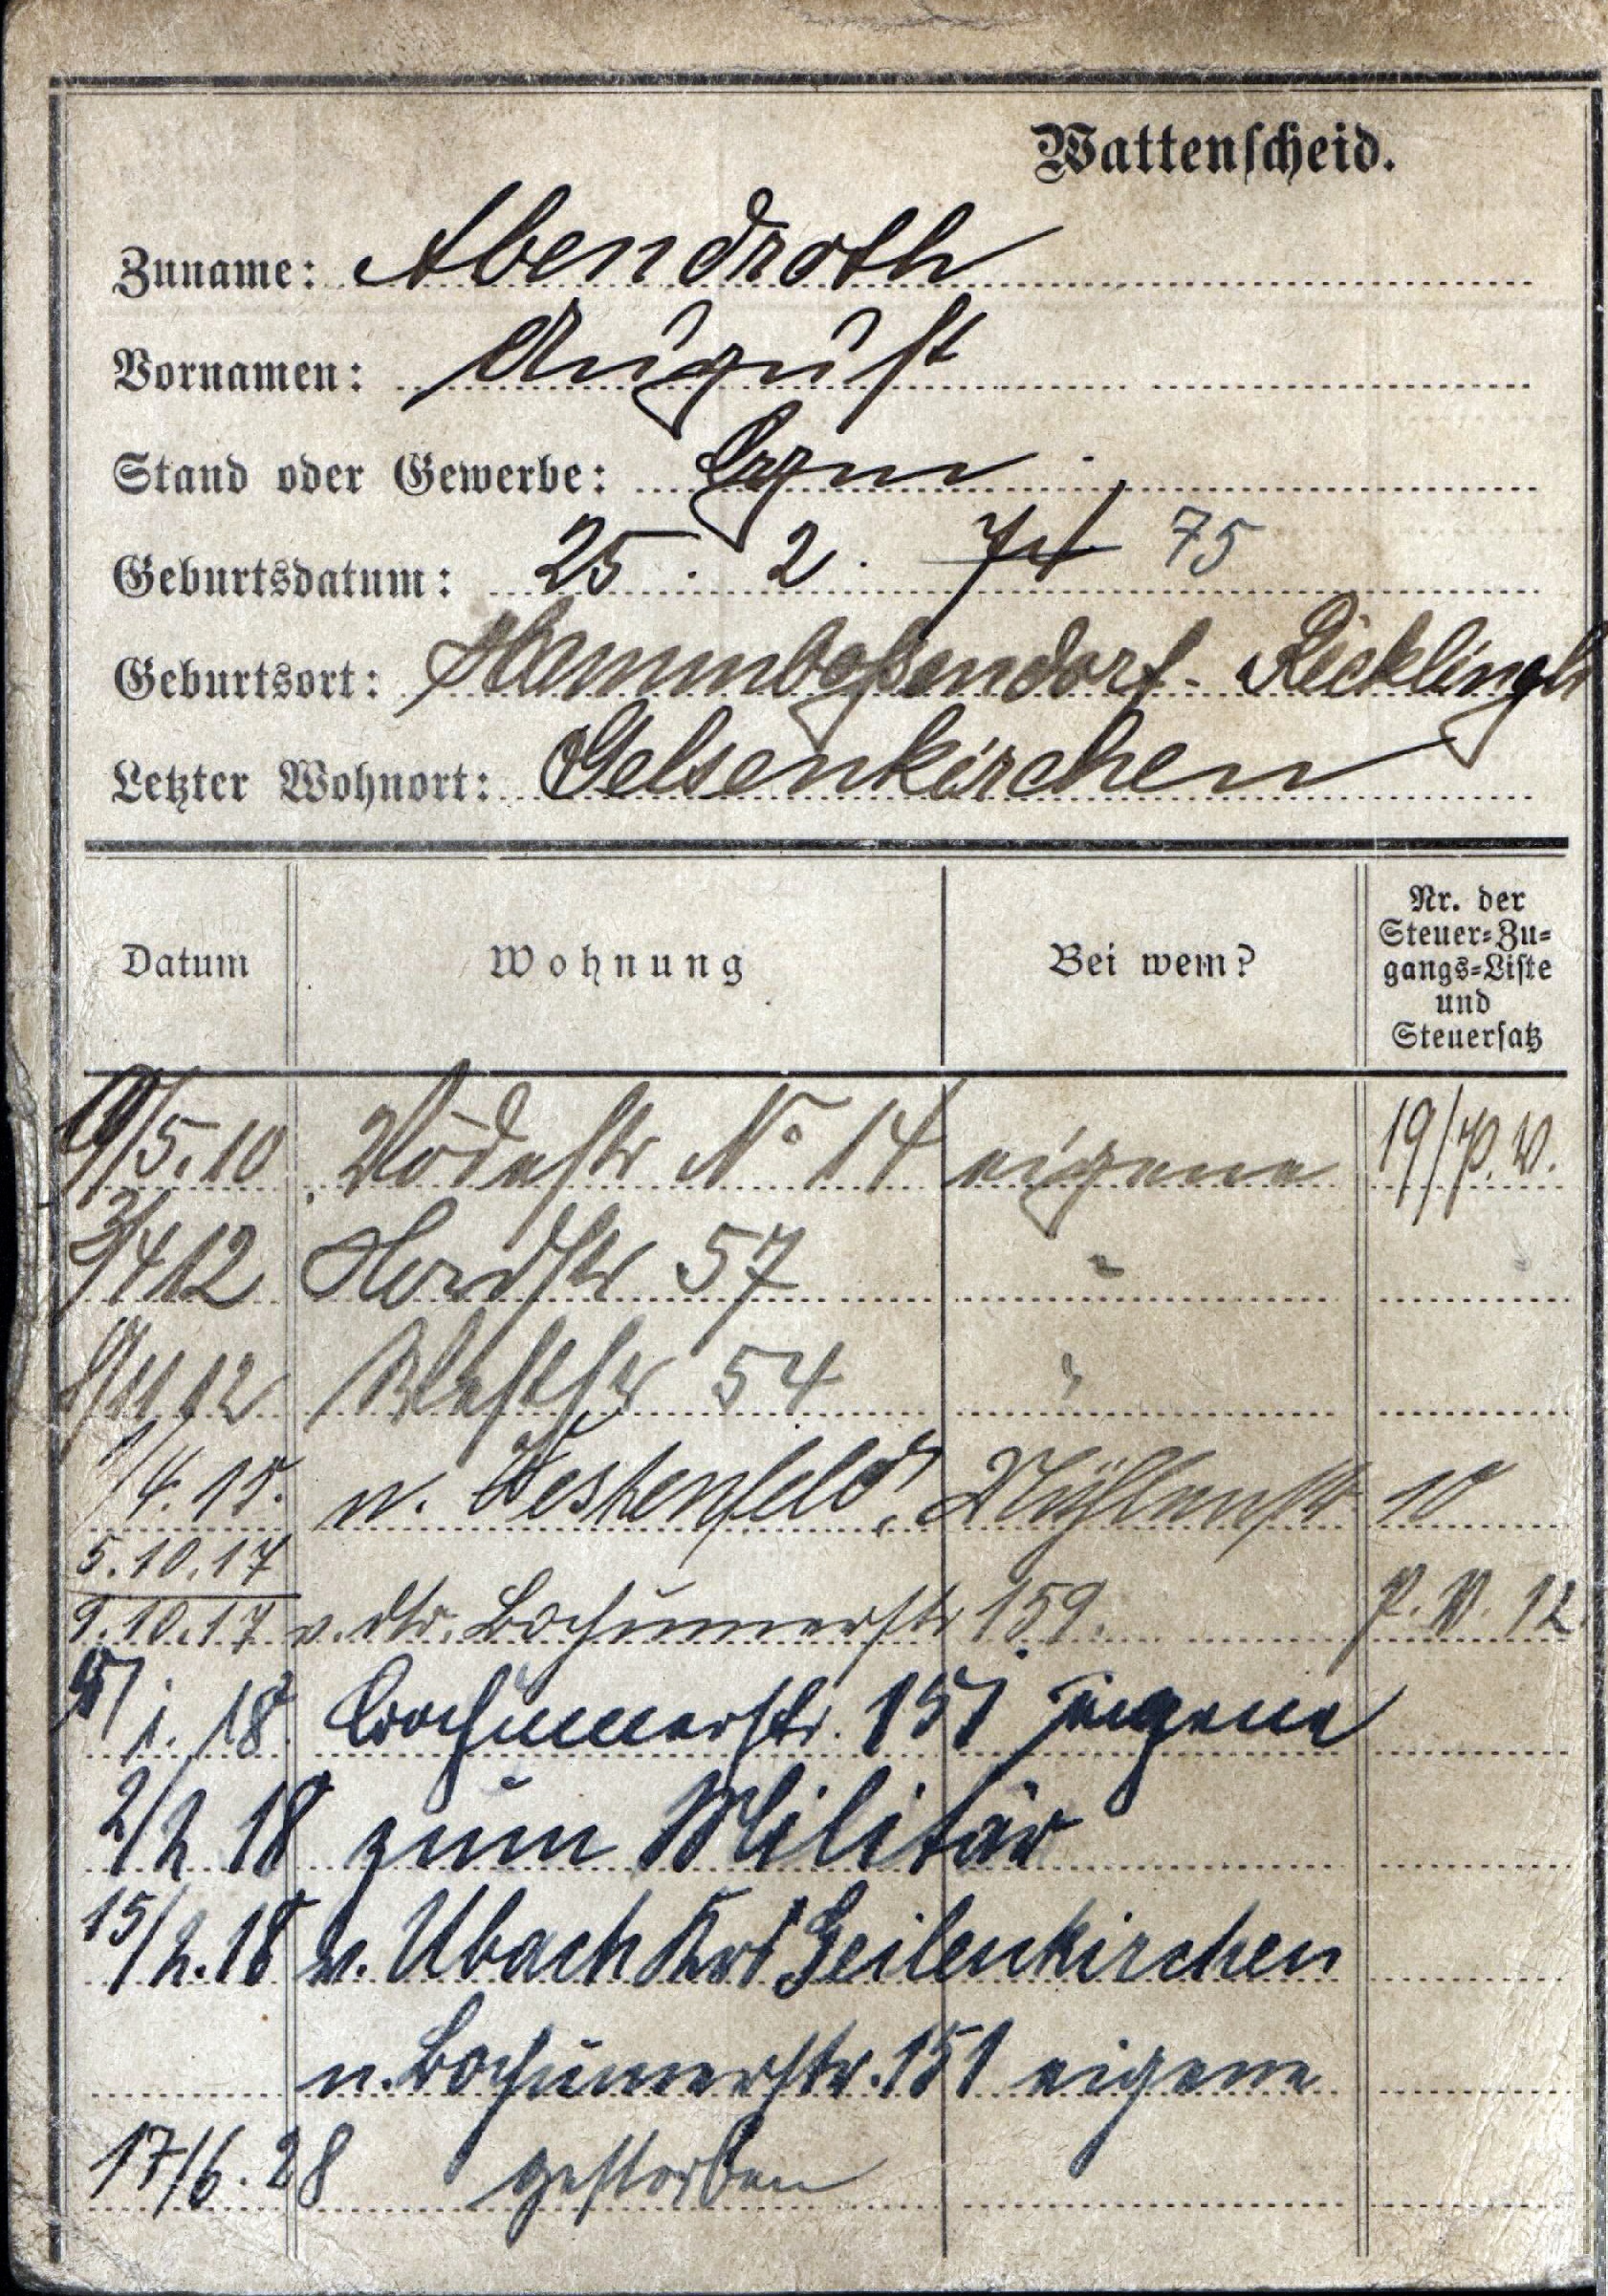 Wattenscheid.
Zuname: Abendroth
Vornamen: August
Stand oder Gewerbe: Bergm
Geburtsdatum: 25. 2. 74 75
Geburtsort: Hammboßendorf - Recklingh
Letzter Wohnort: Gelsenkirchen
Datum Wohnung Bei wem? Nr. der Steuer-Zugangs-Liste und Steuersatz
/5.10 Vödestr No 14 eigene 19/P.V.
/4 12 Hordstr 57 "
/11 12 54 "
1/4.15. n. Westenfeld, Mühlenstr 10
5.10.17
9.10.17 v. dtr. Bochumerstr 159. P.V. 12
/1.18 Bochumerstr. 151 eigene
2/2 18 zum Militär
15/2.18 v. Ubach Krs Geilenkirchen
n. Bochumerstr. 151 eigene
17/6.28 gestorben